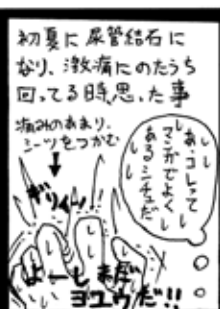 初夏に尿管結石に
なり、激痛にのたうち
回ってる時、思った事
痛みのあまり、
シーツをつかむ
ギリィッ
あ、コレって
マンガでよく
あるシチュだ
よーしまだ
ヨユウだ!!